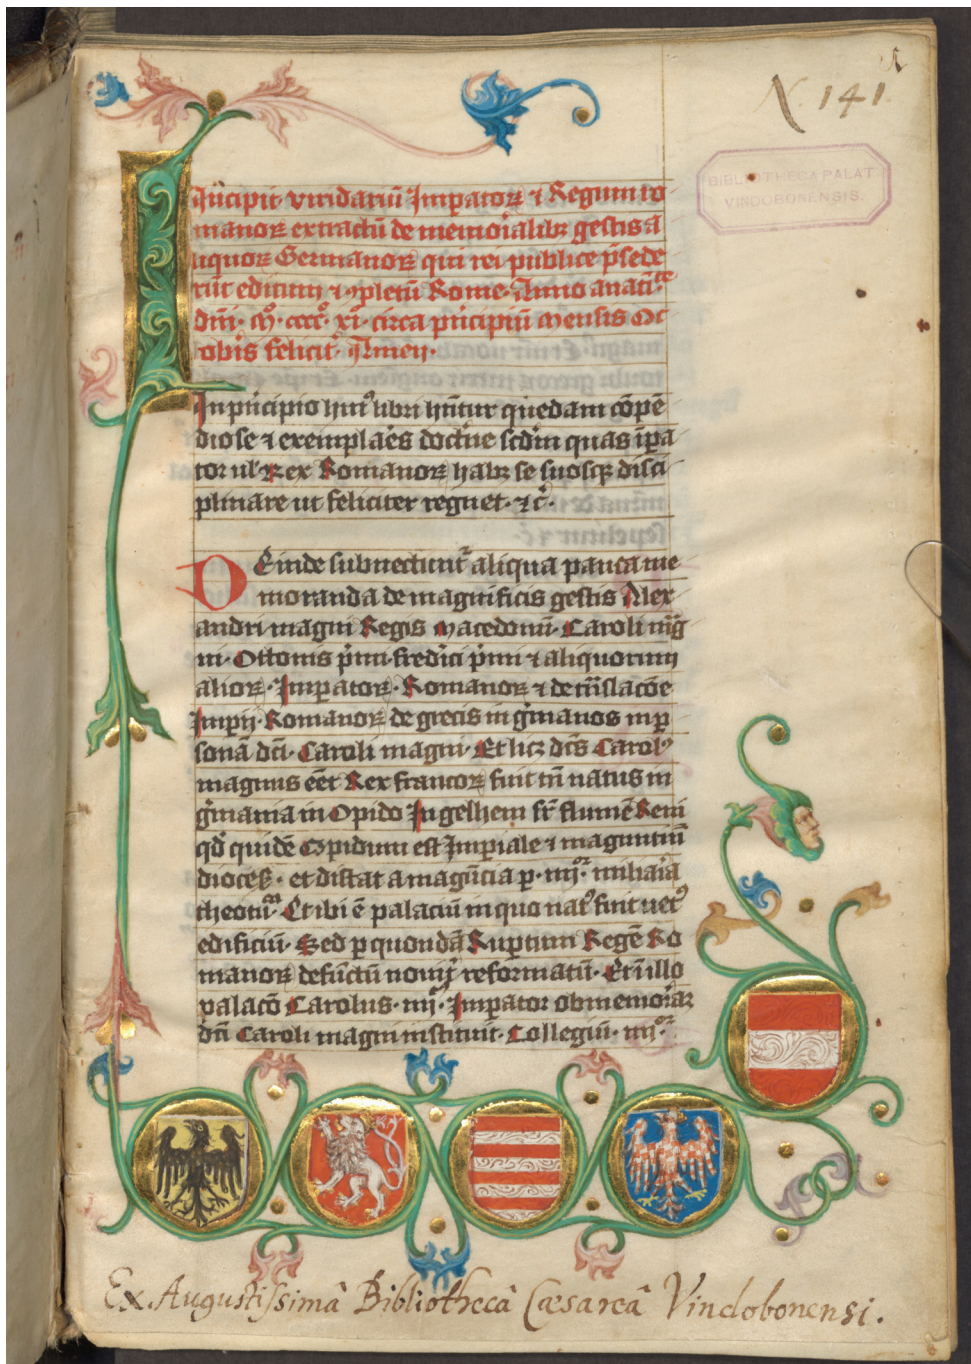 1
N. 141.
BIBLIOTHECA PALAT.
VINDOBONENSIS.
Incipit viridariũ Imperatoꝝ ⁊ Regum ro
manoꝝ extractũ de memoĩalibꝫ gestis a
liquoꝝ Germanoꝝ qui rei publice p̃sede
rũt editum ⁊ ꝯpletũ Rome. Anno a natĩᵗᵉ
dñi. mͦ. ccccͦ. xĩ circa pñcipiũ Mensis Oc
tobis felicit̾. Amen.
In pñcipio huiꝰ libri hñtur quedam cõpẽ
diose ⁊ exemplaẽs doctͥne scd̃m quas ĩpa
tor ul̾ Rex Romanoꝝ habꝫ se suosqꝫ disci
plinare ut feliciter regnet. ⁊c̃.
Deinde subnectunt᷑ aliqua pauca me
moranda de magnificis gestis Alex
andri magni Regis Macedonũ. Caroli mag
ni. Ottonis p̃mi. fred̾ici p̃mi ⁊ aliquorum
alioꝝ. Imperatoꝝ. Romanoꝝ ⁊ de trãslacõe
Imperij. Romanoꝝ de grecis in g̃manos in ꝑ
sonã dc̃i. Caroli magni. Et licꝫ dc̃s Carolꝰ
magnus eẽt Rex francoꝝ fuit tñ natus in
g̃mania in Opido Ingelhem sr̃ flumẽ Reni
qd̾ quidẽ Opidum est Imperiale ⁊ maguntinũ
dioceẽ. et distat a magũcia ꝑ. iiijᵒʳ. miliaĩa
theotũᵃ. Et ibi ẽ palaciũ in quo natꝰ fuit uetꝰ
edificiũ. Sed ꝑ quondã Ruꝑtum Regẽ Ro
manoꝝ defũctũ noviẗ reformatũ. Et in illo
palacõ Carolus. iiijᵗ. Imperator ob memoĩaꝫ
dñi Caroli magni instituit. Collegiũ. iiijᵒʳ.
Ex Augustissimâ Bibliothecâ Cæsareâ Vindobonensi.